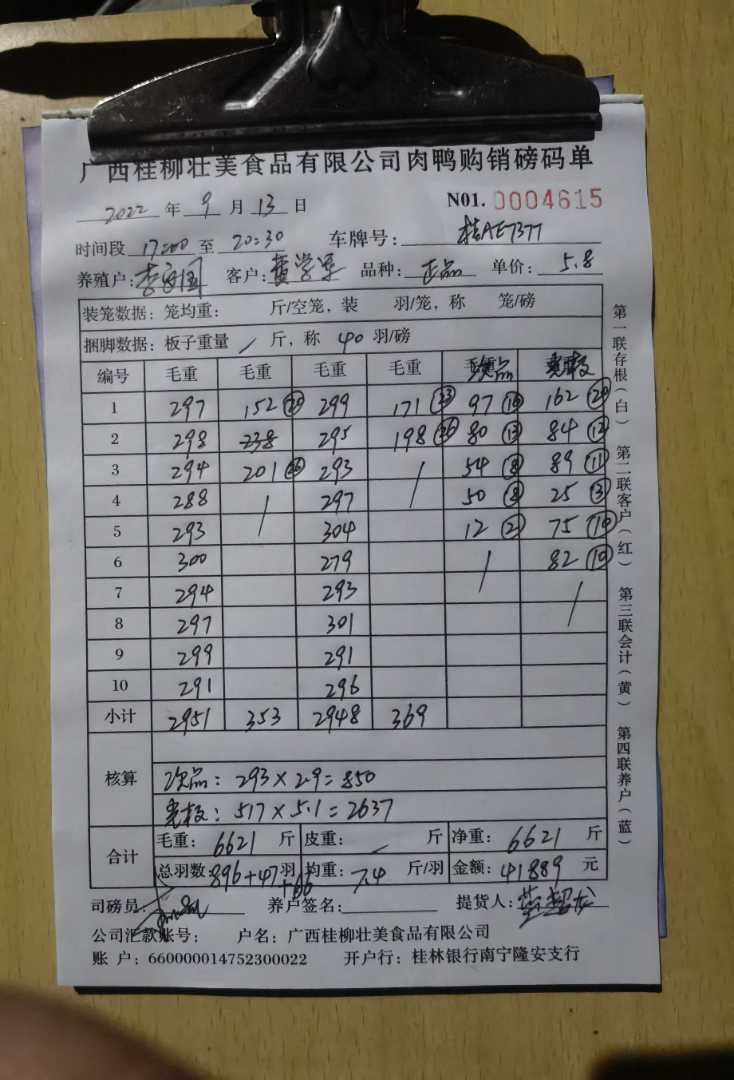 广西桂柳壮美食品有限公司肉鸭购销磅码单
2022 年 9 月 13 日 N01. 0004615
时间段 17:00 至 20:30 车牌号: 桂AE7377
养殖户: 客户: 黄学军 品种: 正品 单价: 5.8
装笼数据: 笼均重: 斤/空笼, 装 羽/笼, 称 笼/磅
捆脚数据: 板子重量 / 斤, 称 40 羽/磅
编号 毛重 毛重 毛重 毛重 次品
1 297 152 299 171 97 162
2 298 238 295 198 80 13 84 12
3 294 201 293 / 54 8 89 11
4 288 / 297 50 8 25 3
5 293 304 12 2 75 10
6 300 279 / 82 10
7 294 293 /
8 297 301
9 299 291
10 291 296
小计 2951 353 2948 369
核算
次品: 293×2.9=850
517×5.1=2637
合计
毛重: 6621 斤 皮重: / 斤 净重: 6621 斤
总羽数 896+47羽 +66 均重: 7.4 斤/羽 金额: 41889 元
司磅员: 养户签名: 提货人:
公司汇款账号: 户名: 广西桂柳壮美食品有限公司
账 户: 660000014752300022 开户行: 桂林银行南宁隆安支行
第一联存根(白)
第二联客户(红)
第三联会计(黄)
第四联养户(蓝)